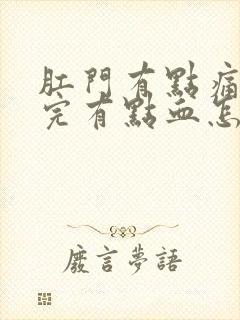 肛門有點痛
完有點血怎
廢言夢語